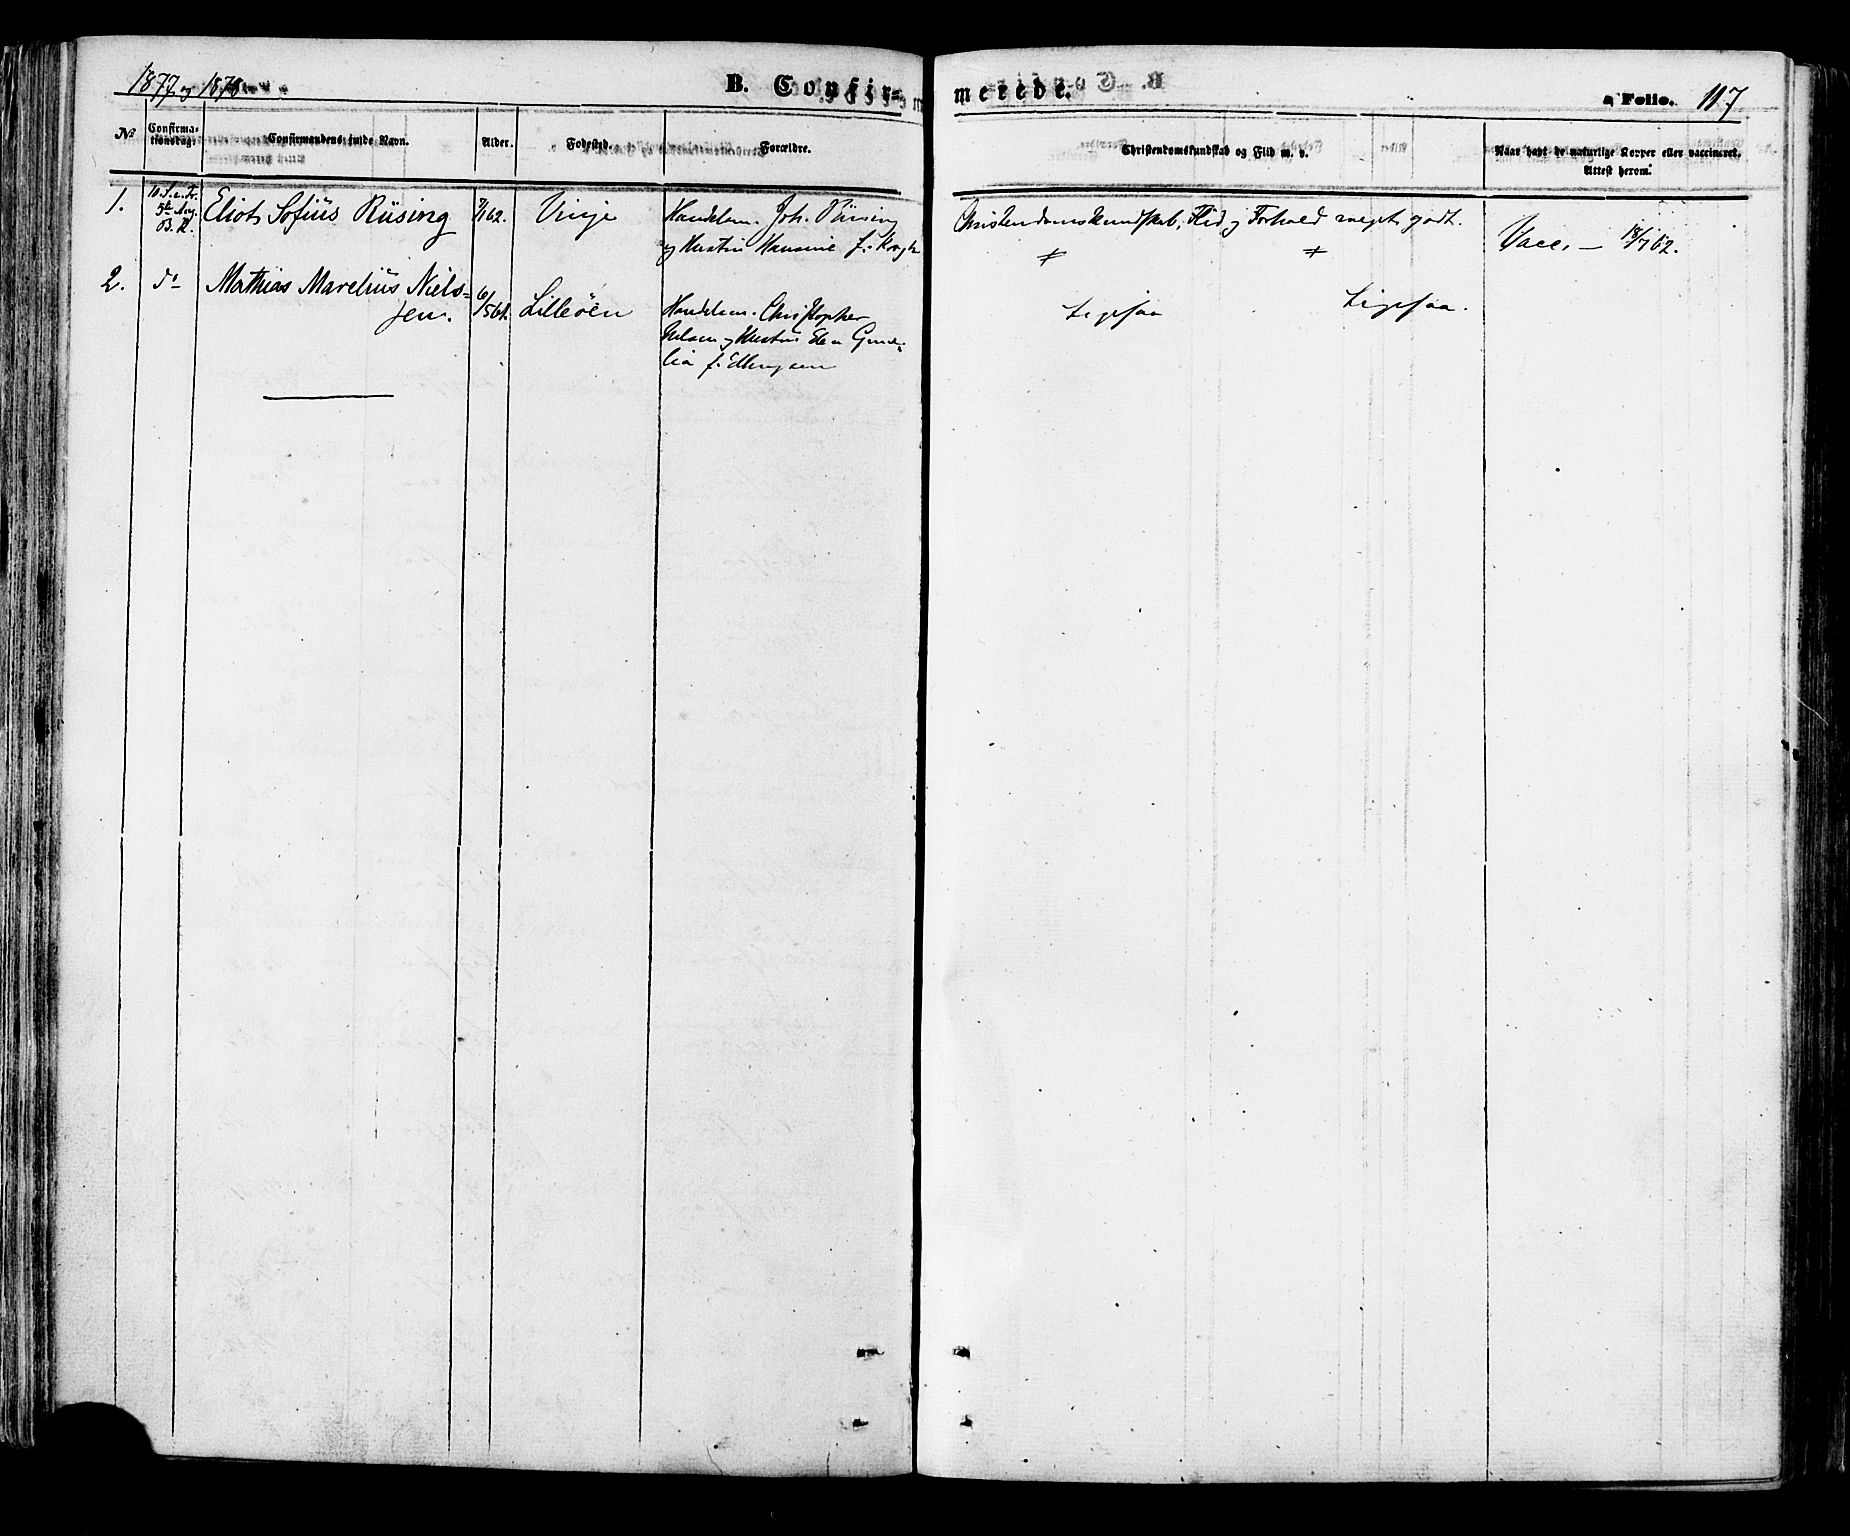 1877 og 1878
B. Confirmerede.
Folio. 117
No
Confirmationsdag.
Confirmandens fulde Navn.
Alder.
Fødested.
Forældre.
Christendomskundskab og Flid m. v.
Naar havt de naturlige Kopper eller vaccineret.
Attest herom.
1.
10. S. e. Tr.
5te Aug.
B. K.
Eliot Sofius Rüsing
62.
Vinje
Handelsm. Joh. Rüsing
og Hustru Hansine f. Krogh
Christendomskundskab, Flid og Forhold meget godt.
Vacc. — 18/7 62.
2.
do
Mathias Marelius Niels-
sen.
6/5 61.
Lilleöen
Handelsm. Christopher
Nilsen og Hustru Elen Gund-
lia f. Ellingsen
Ligesaa
Ligesaa.